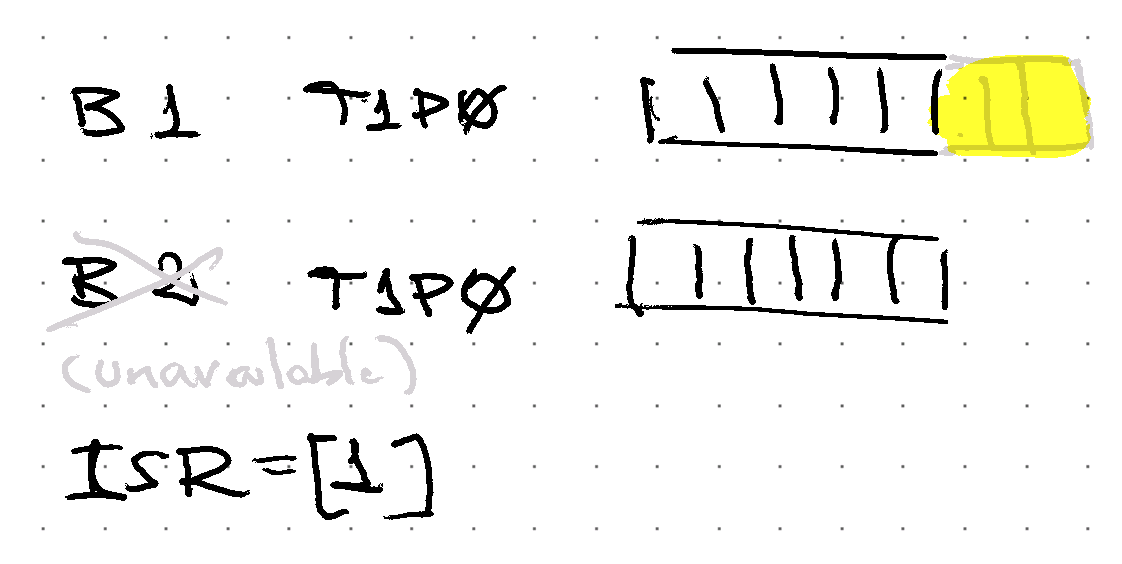 B 1 T1PØ
B 2 T1PØ
(unavailable)
ISR = [1]